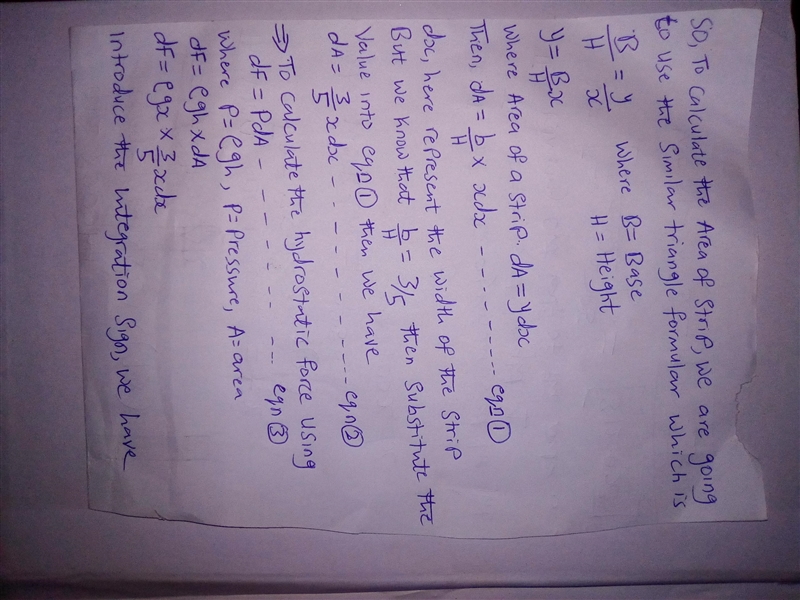 So, To Calculate the Area of Strip, we are going
to use the Similar triangle formular which is
B/H = y/x where B = Base
H = Height
y = B/H x
where Area of a strip. dA = ydx
Then, dA = b/H x xdx - - - - - - - .... eqn ①
dx, here represent the width of the Strip
But we know that b/H = 3/5 then Substitute the
Value into eqn ① then we have
dA = 3/5 xdx - - - - - - - - - .... eqn ②
⇒ To calculate the hydrostatic force using
dF = PdA - - - - - - - ... eqn ③
where P = ρgh, P = Pressure, A = area
dF = ρgh x dA
dF = ρgx x 3/5 xdx
Introduce the Integration Sign, we have